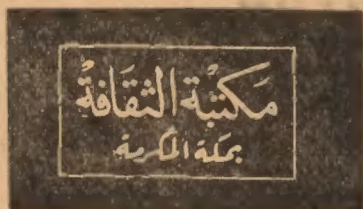 مَكتبَة الثقَافَة
بمكة المكرمة